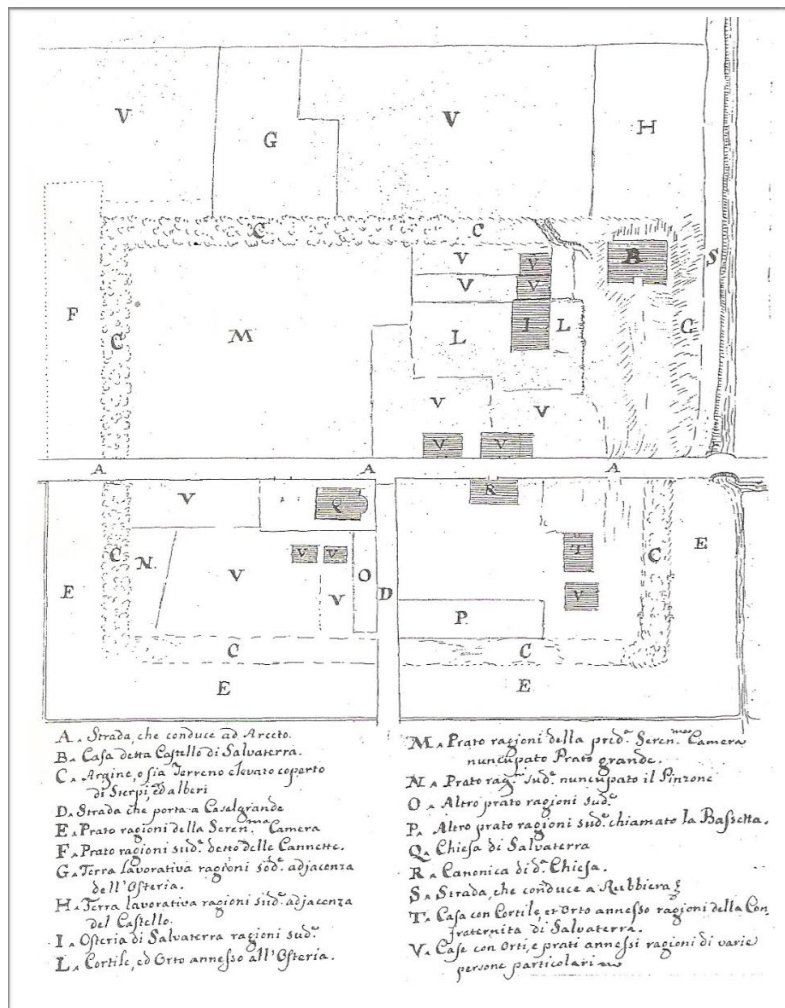 V G V H
C C B S
V V
V V
F C M L I L C
V V
V V
A A A
V Q R
E C N V V V O D T C E
V V
P
C C
E E
A. Strada, che conduce ad Arceto.
B. Casa detta Castello di Salvaterra.
C. Argine, o sia Terreno elevato coperto
di Sterpi, ed alberi
D. Strada che porta a Casalgrande
E. Prato ragioni della Seren.ma Camera
F. Prato ragioni sud.e detto delle Cannette.
G. Terra lavorativa ragioni sud.e adjacenza
dell'Osteria.
H. Terra lavorativa ragioni sud.e adjacenza
del Castello.
I. Osteria di Salvaterra ragioni sud.e
L. Cortile, ed Orto annesso all'Osteria.
M. Prato ragioni della pred.a Seren.ma Camera
nuncupato Prato grande.
N. Prato rag.ni sud.e nuncupato il Pinzone
O. Altro prato ragioni sud.e
P. Altro prato ragioni sud.e chiamato la Bassetta.
Q. Chiesa di Salvaterra
R. Canonica di d.a Chiesa.
S. Strada, che conduce a Rubbiera
T. Casa con Cortile, et Orto annesso ragioni della Con
fraternita di Salvaterra.
V. Case con Orti, e prati annessi ragioni di varie
persone particolari